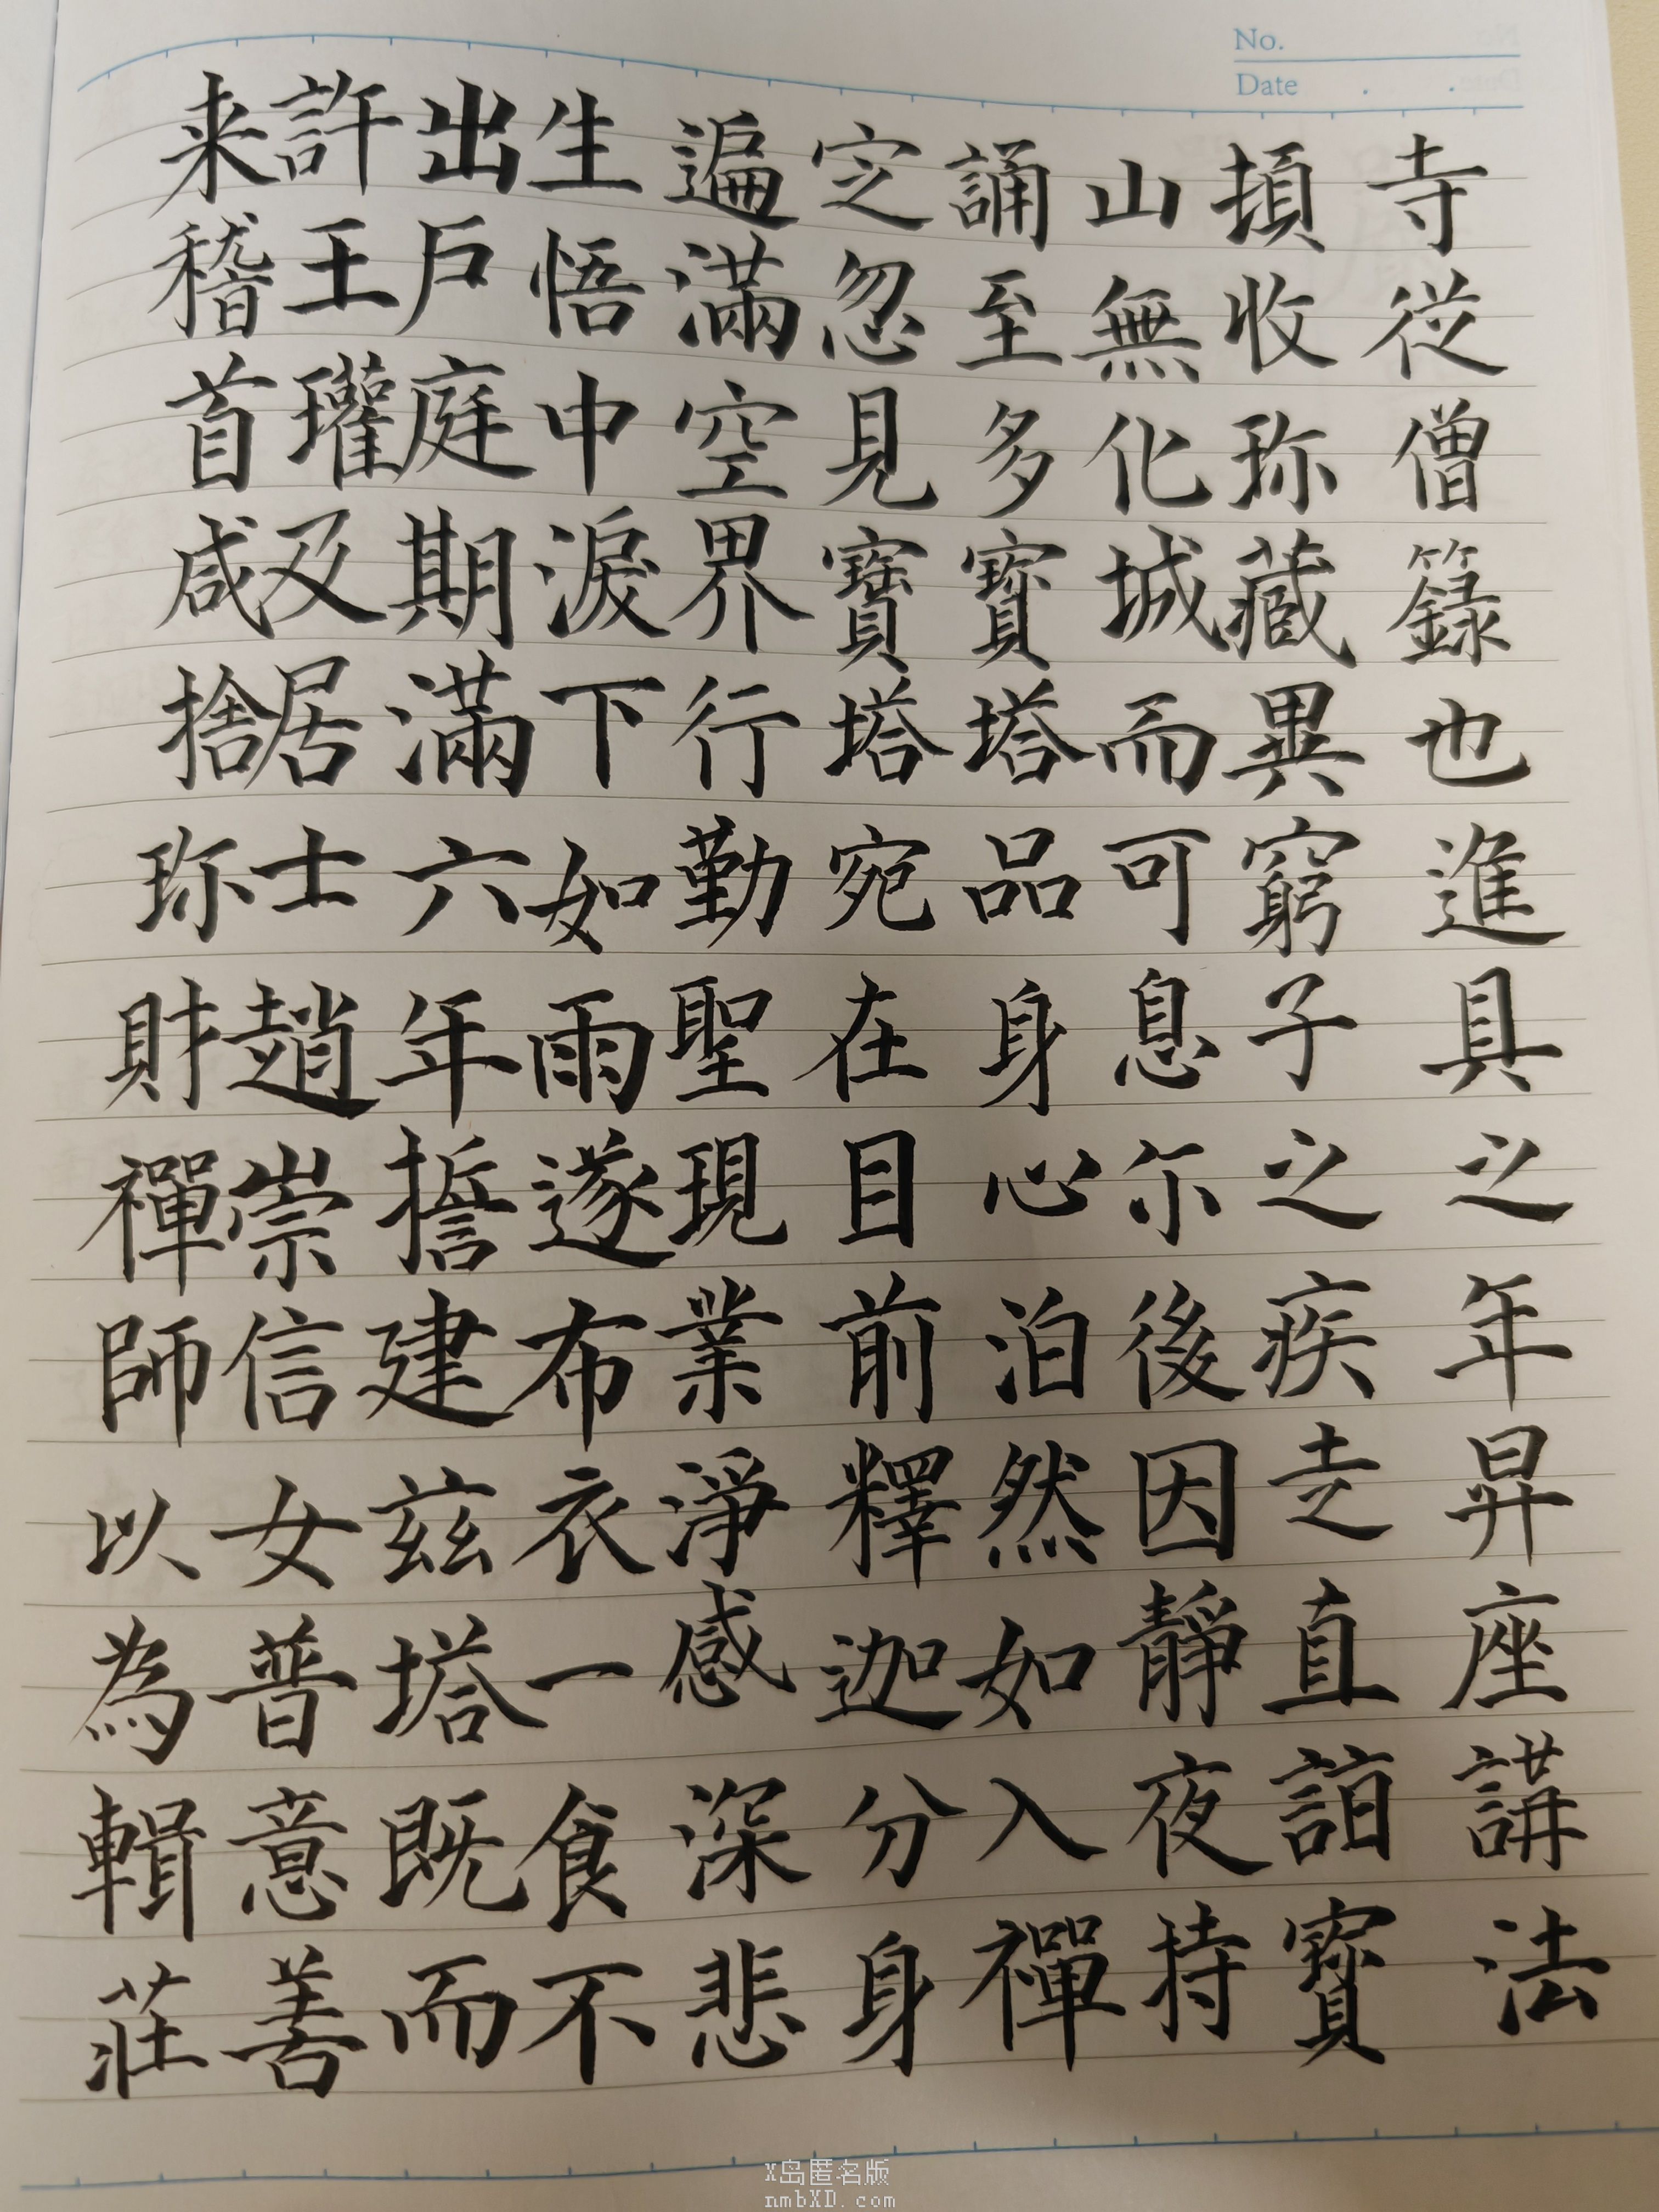 No.
Date
寺従僧籙也進具之年昇座講法
頓收珎藏異窮子之疾走直詣寳
山無化城而可息尓後因靜夜持
誦至多寳塔品身心泊然如入禪
定忽見寶塔宛在目前釋迦分身
遍滿空界行勤聖現業淨感深悲
生悟中淚下如雨遂布衣一食不
出戶庭期滿六年擔建茲塔既而
許王瓘及居士趙崇信女普意善
来稽首咸捨珎財禪師以為輯莊
X岛匿名版
nmbXD.com